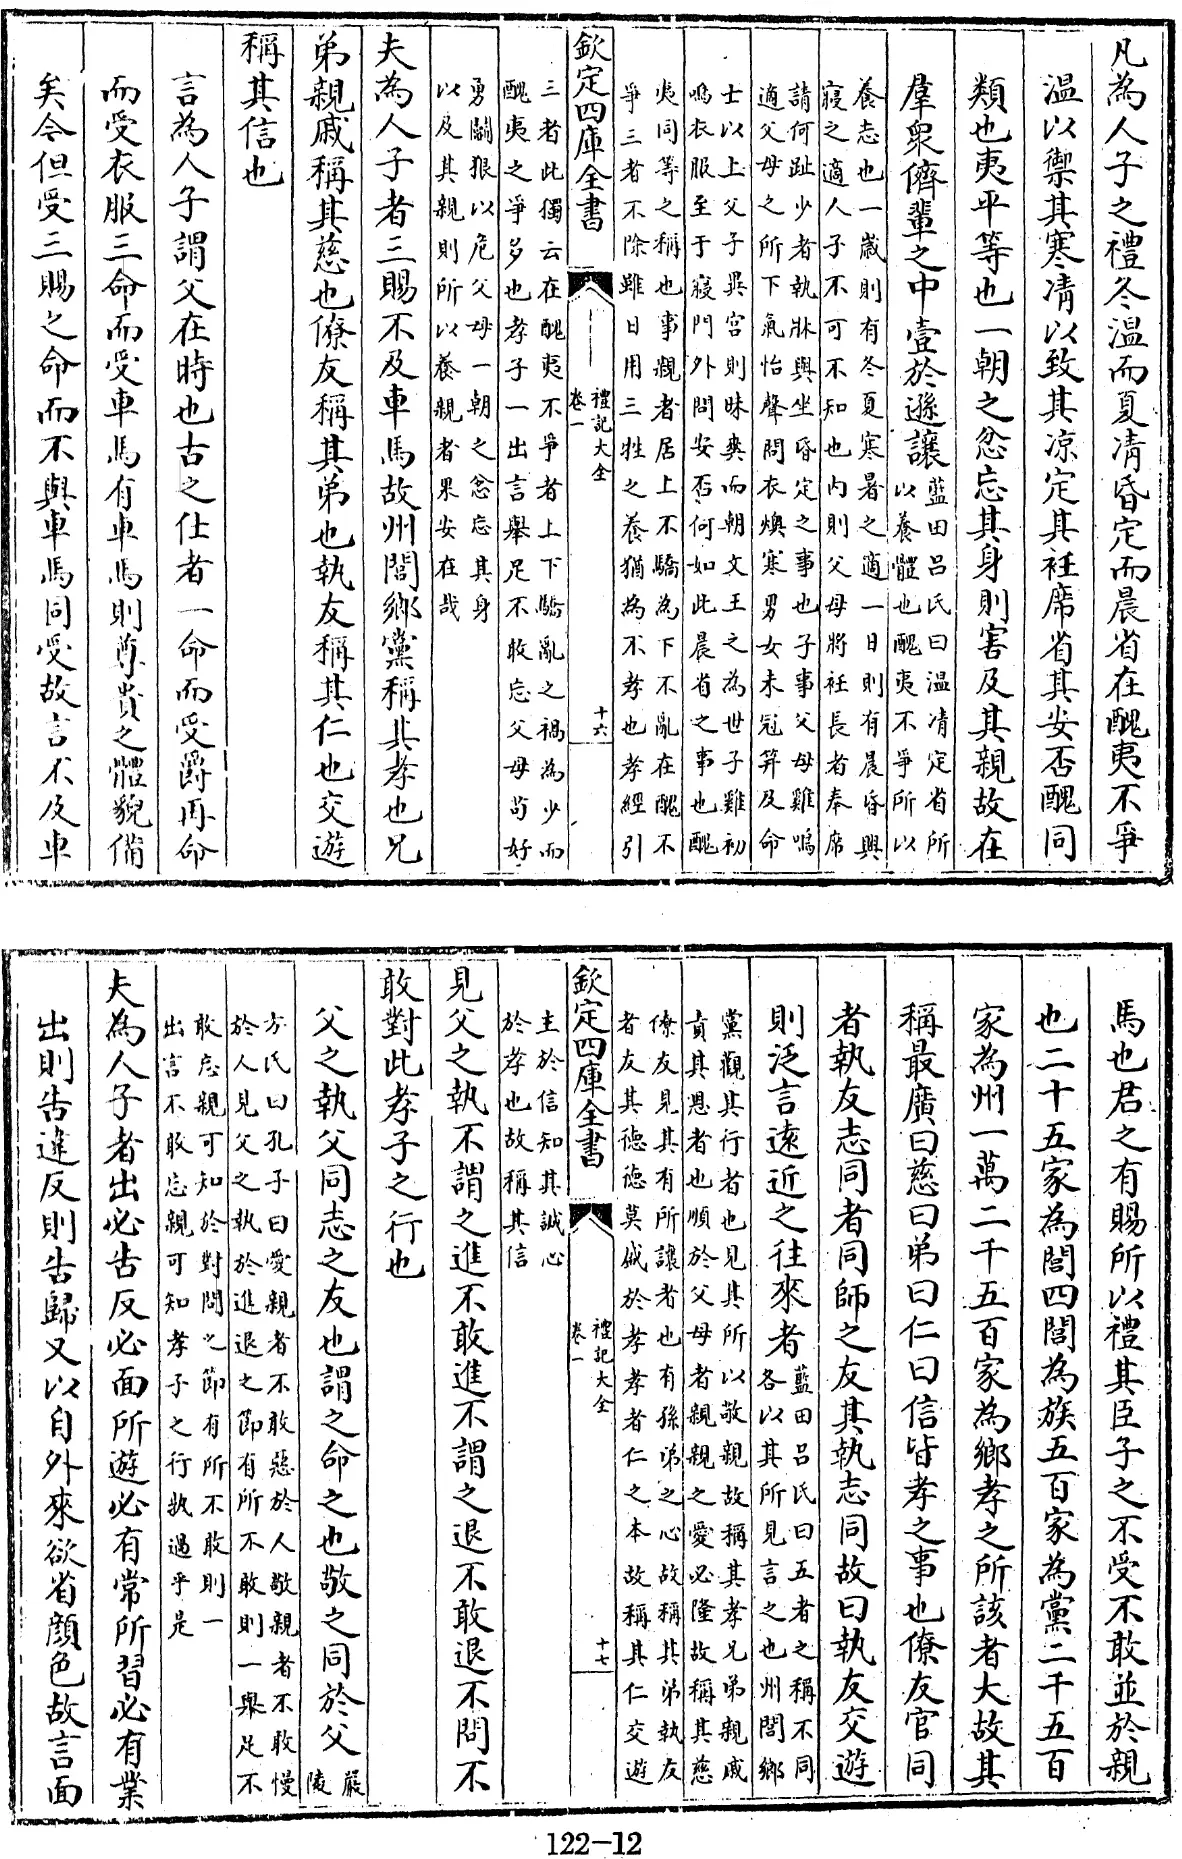 凡為人子之禮冬温而夏凊昏定而晨省在醜夷不爭
温以禦其寒凊以致其凉定其衽席省其安否醜同
類也夷平等也一朝之忿忘其身則害及其親故在
羣衆儕輩之中壹於遜讓
藍田吕氏曰温凊定省所
以養體也醜夷不爭所以
養志也一歲則有冬夏寒暑之適一日則有晨昏興
寢之適人子不可不知也内則父母將衽長者奉席
請何趾少者執牀與坐昏定之事也子事父母雞鳴
適父母之所下氣怡聲問衣燠寒男女未冠笄及命
士以上父子異宫則昧爽而朝文王之為世子雞初
鳴衣服至于寢門外問安否何如此晨省之事也醜
夷同等之稱也事親者居上不驕為下不亂在醜不
爭三者不除雖日用三牲之養猶為不孝也孝經引
欽定四庫全書
禮記大全
卷一
十六
三者此獨云在醜夷不爭者上下驕亂之禍為少而
醜夷之爭多也孝子一出言舉足不敢忘父母苟好
勇鬬狠以危父母一朝之忿忘其身
以及其親則所以養親者果安在哉
夫為人子者三賜不及車馬故州閭鄉黨稱其孝也兄
弟親戚稱其慈也僚友稱其弟也執友稱其仁也交遊
稱其信也
言為人子謂父在時也古之仕者一命而受爵再命
而受衣服三命而受車馬有車馬則尊貴之體貌備
矣今但受三賜之命而不與車馬同受故言不及車
馬也君之有賜所以禮其臣子之不受不敢並於親
也二十五家為閭四閭為族五百家為黨二千五百
家為州一萬二千五百家為鄉孝之所該者大故其
稱最廣曰慈曰弟曰仁曰信皆孝之事也僚友官同
者執友志同者同師之友其執志同故曰執友交遊
則泛言遠近之往來者
藍田吕氏曰五者之稱不同
各以其所見言之也州閭鄉
黨觀其行者也見其所以敬親故稱其孝兄弟親戚
責其恩者也順於父母者親親之愛必隆故稱其慈
僚友見其有所讓者也有孫弟之心故稱其弟執友
者友其德德莫盛於孝孝者仁之本故稱其仁交遊
欽定四庫全書
禮記大全
卷一
十七
主於信知其誠心
於孝也故稱其信
見父之執不謂之進不敢進不謂之退不敢退不問不
敢對此孝子之行也
父之執父同志之友也謂之命之也敬之同於父
嚴
陵
方氏曰孔子曰愛親者不敢惡於人敬親者不敢慢
於人見父之執於進退之節有所不敢則一舉足不
敢忘親可知於對問之節有所不敢則一
出言不敢忘親可知孝子之行孰過乎是
夫為人子者出必告反必面所遊必有常所習必有業
出則告違反則告歸又以自外來欲省顔色故言面
122-12